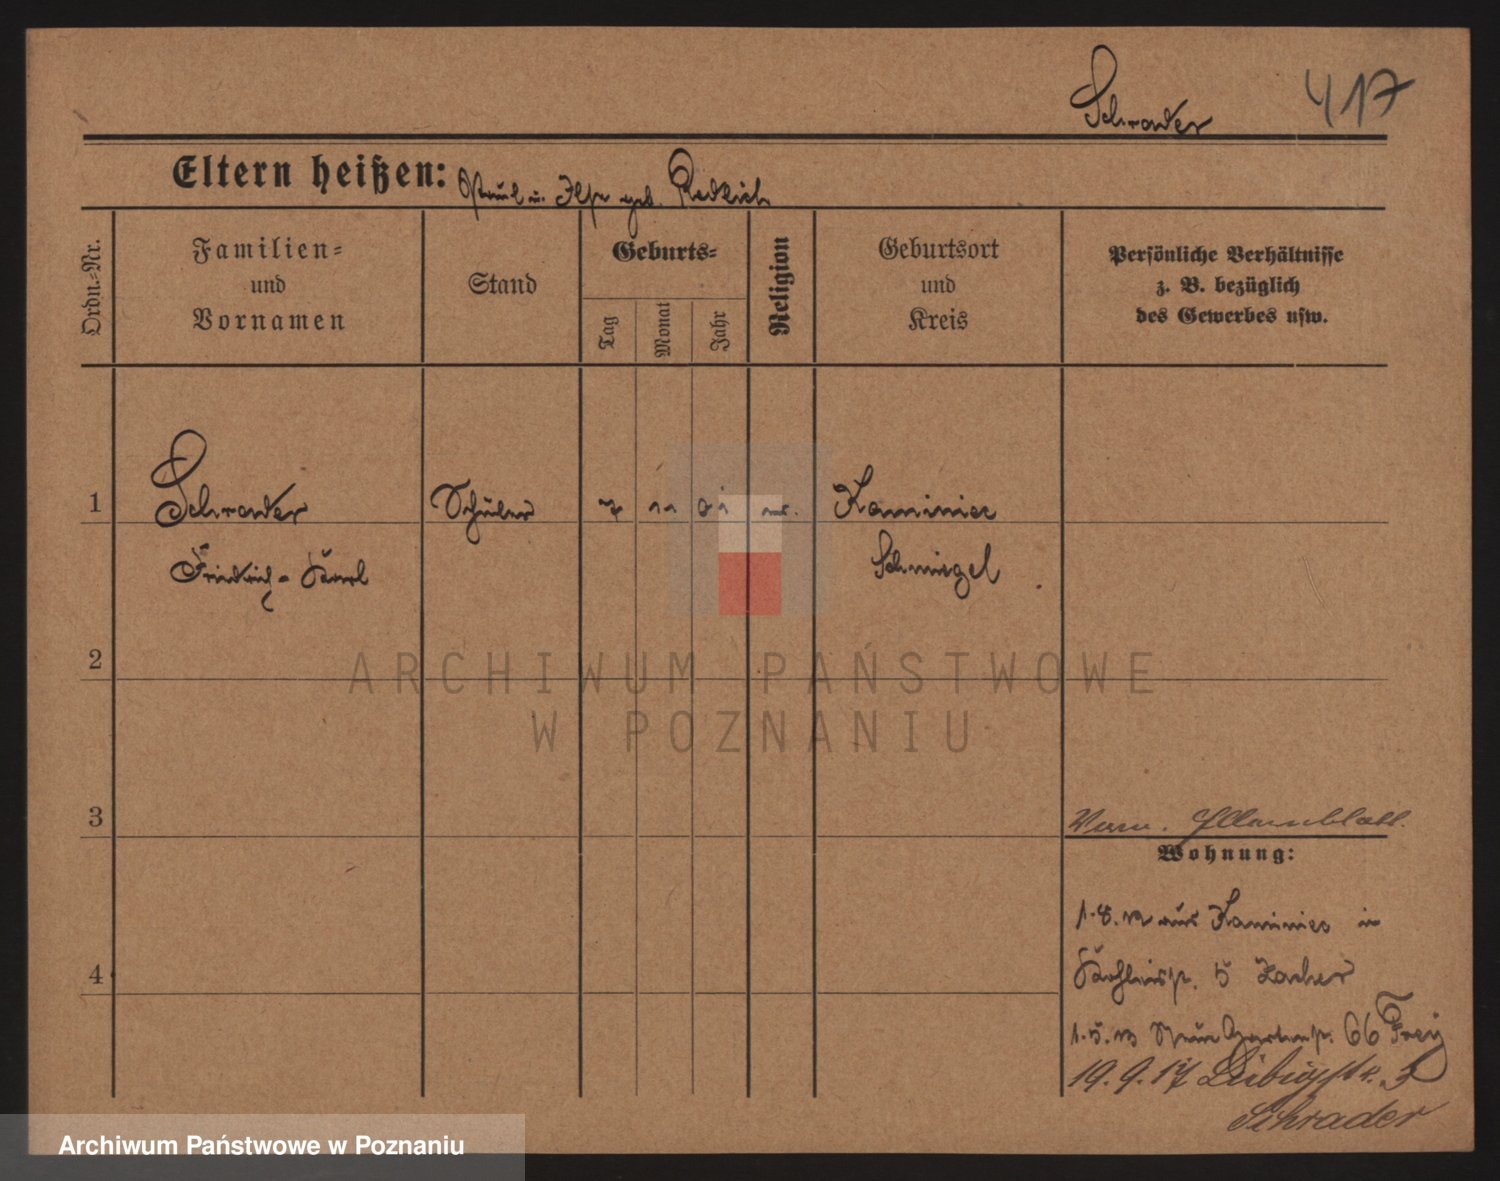 Schrader 417
Eltern heißen: Paul u. Ilse geb. Redlich
Ordn.-Nr.
Familien-
und
Vornamen
Stand
Geburts-
Tag
Monat
Jahr
Religion
Geburtsort
und
Kreis
Persönliche Verhältnisse
z. B. bezüglich
des Gewerbes usw.
1 Schrader Schüler 7 11 01 Kaminiec
Friedrich-Karl Schmiegel
2
ARCHIWUM PAŃSTWOWE
W POZNANIU
3
Wohnung:
1.8.12 aus Kaminiec in
5 Zacher
4
1.5.13 Neue Gartenstr. 66 Frey
19.9.17 Liebigstr. 3
Schrader
Archiwum Państwowe w Poznaniu